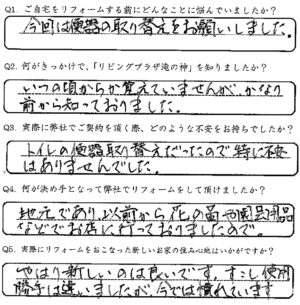 Q1. ご自宅をリフォームする前にどんなことに悩んでいましたか？
今回は便器の取り替えをお願いしました。
Q2. 何がきっかけで、「リビングプラザ滝の神」を知りましたか？
いつの頃からか覚えていませんが、かなり
前から知っておりました。
Q3. 実際に弊社でご契約を頂く際、どのような不安をお持ちでしたか？
トイレの便器取り替えだったので特に不安
はありませんでした。
Q4. 何が決め手となって弊社でリフォームをして頂けましたか？
地元であり、以前から花の苗や園芸用品
などでお店に行っておりましたので。
Q5. 実際にリフォームをおこなった新しいお家の住み心地はいかがですか？
やはり新しいのは良いです。すこし使用
勝手は違いましたが、今では慣れています